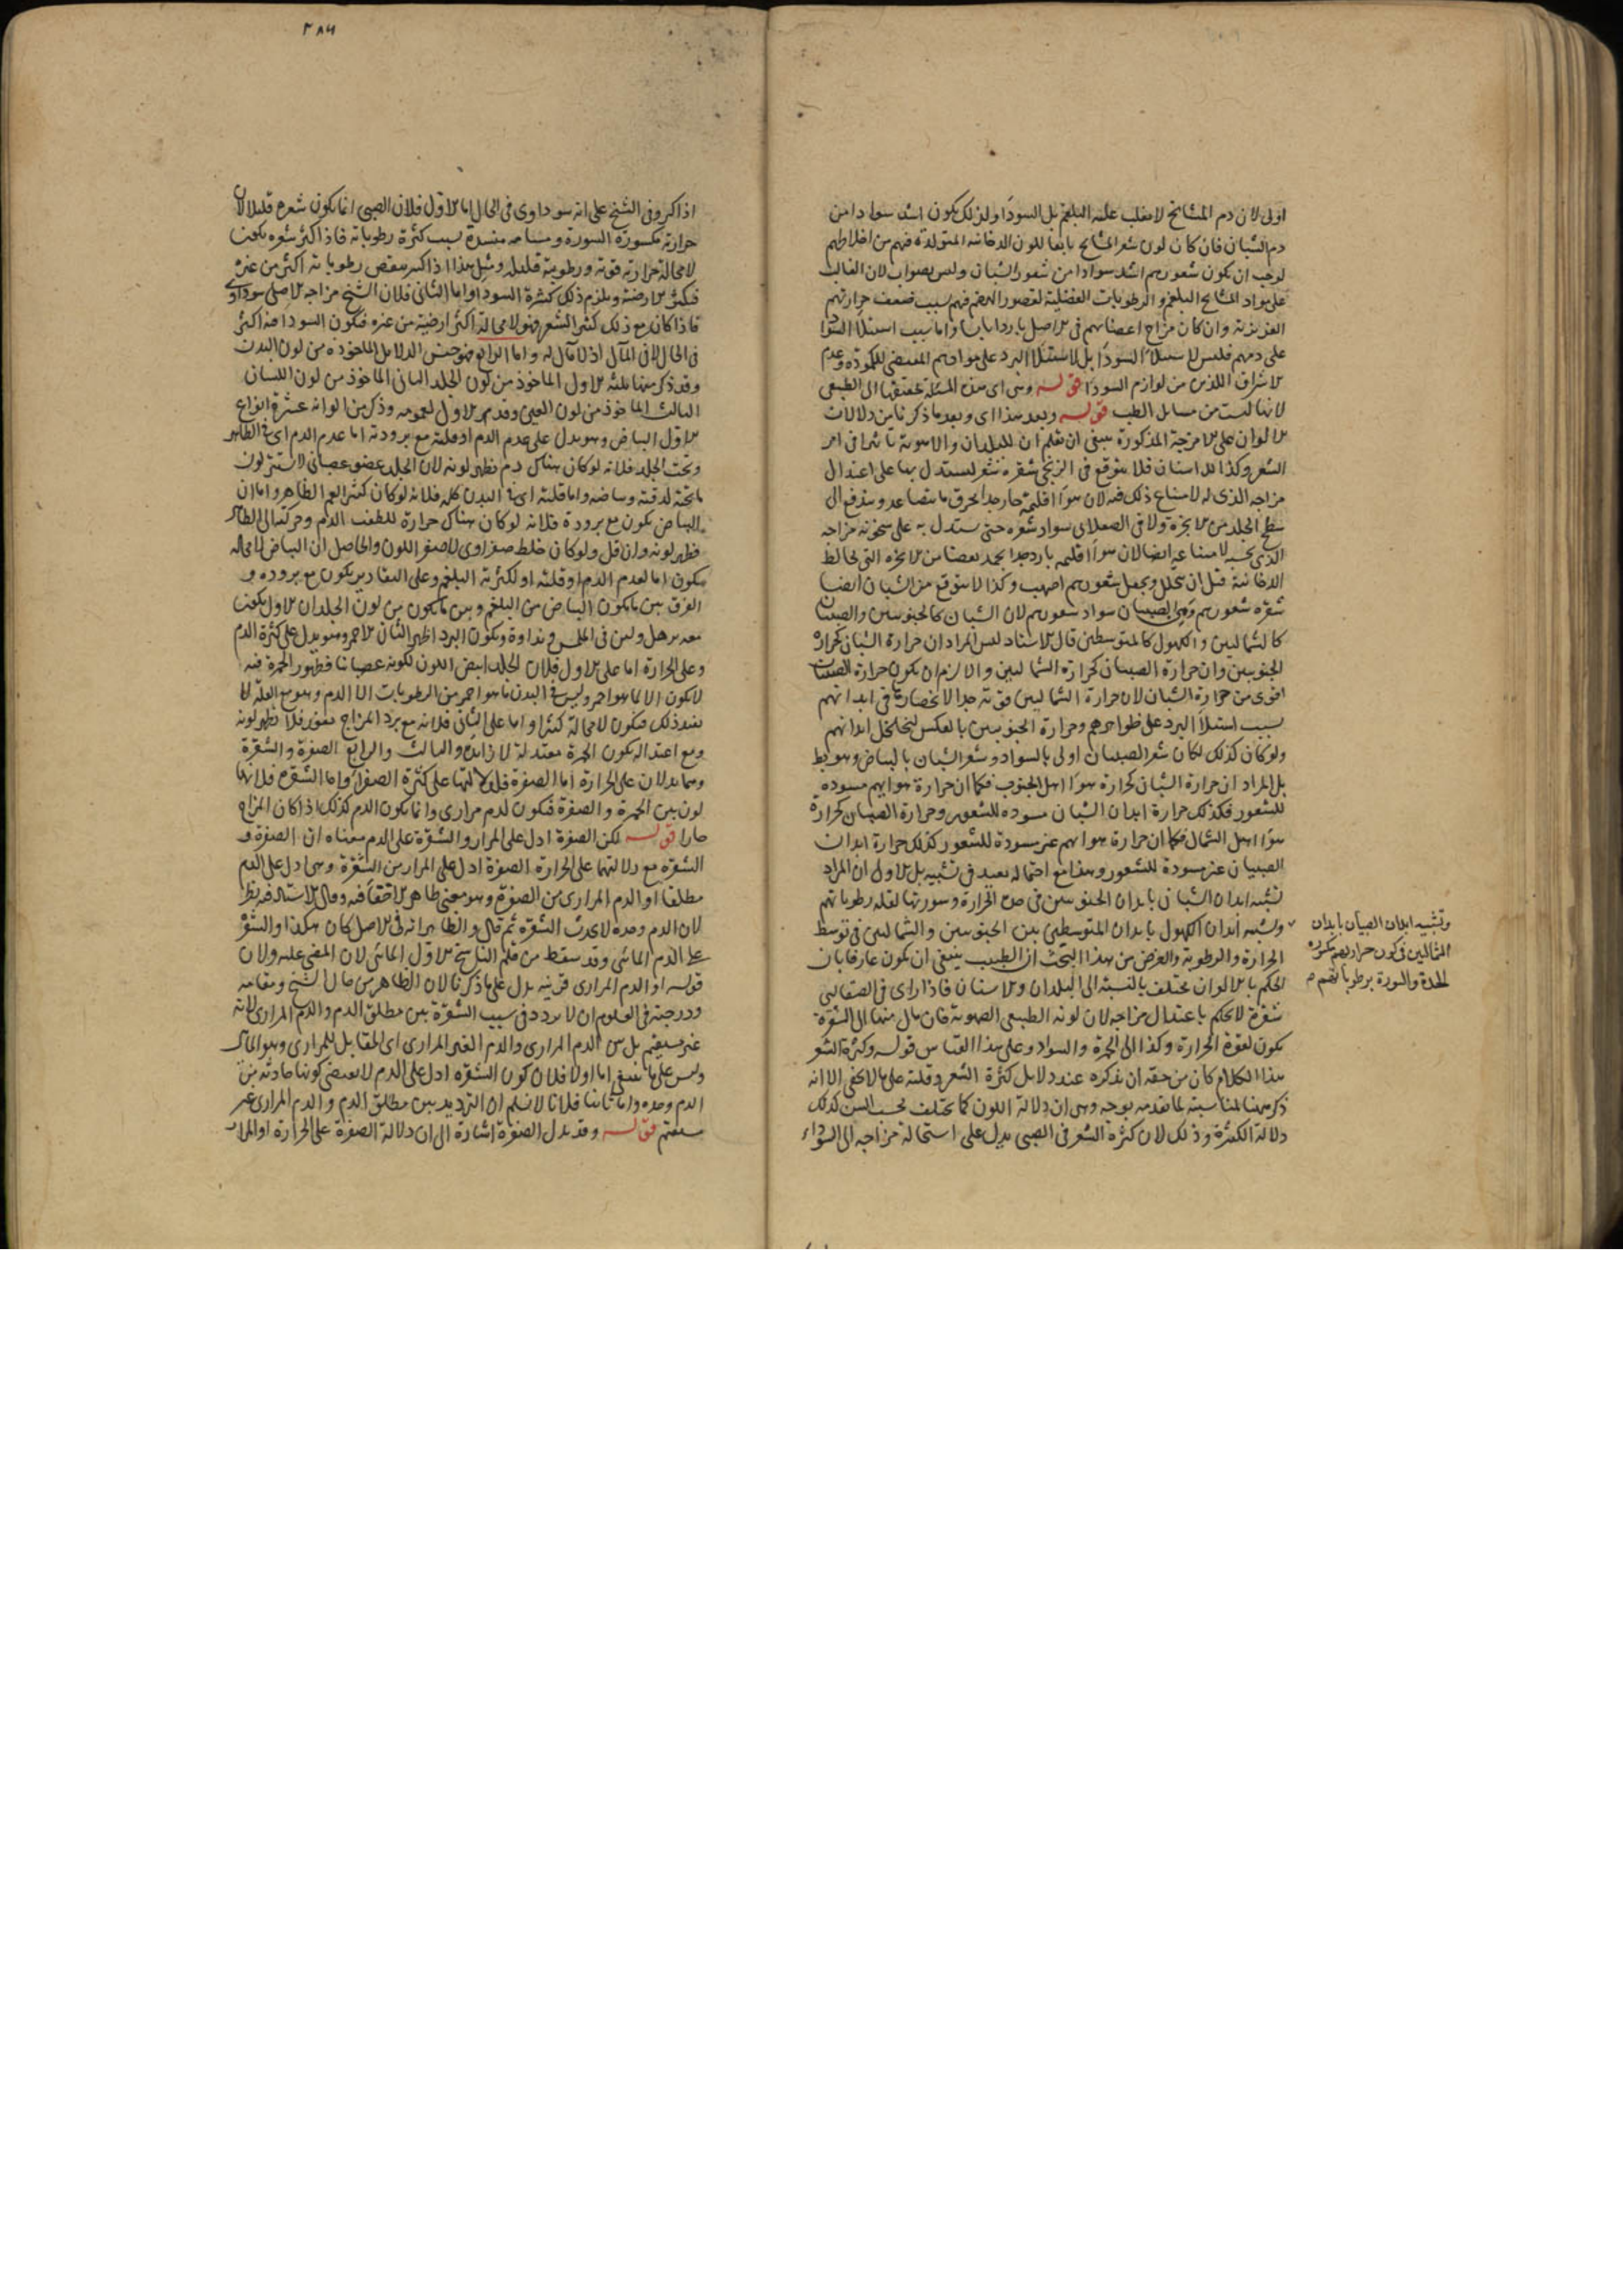 اولى لان دم المشايخ لا يغلب عليه البلغم بل السوداء ولذلك يكون اشد سوادا من
دم الشبان فان كان لون شعر المشايخ تابعا للون الدخانية المتولدة فيهم من اخلاطهم
لوجب ان يكون شعورهم اشد سوادا من شعور الشبان وليس بصواب لان الغالب
على مواد المشايخ البلغم والرطوبات الفضلية لقصور الهضم فيهم بسبب ضعف حرارتهم
الغريزية وان كان مزاج اعضائهم في الاصل باردا يابسا واما سبب استيلاء السودا
على دمهم فليس لاستيلاء السوداء بل لاستيلاء البرد على موادهم المقتضى للكمودة وعدم
الاشراق اللذين من لوازم السودا قوله وهى اى هذه المسئلة حقيقتها الى الطبيعى
لانها ليست من مسايل الطب قوله وبعد هذا اى وبعد ما ذكرنا من دلالات
الالوان على الامزجة المذكورة ينبغى ان تعلم ان للبلدان والاهوية تاثيرا في امر
الشعر وكذا للاسنان فلا يتوقع في الزنجى شقرة شعر ليستدل بها على اعتدال
مزاجه الذى له لامتناع ذلك فيه لان هواء اقليمه حار جدا يحرق ما يتصاعد ويندفع الى
سطح الجلد من الابخرة ولا في الصقلابى سواد شعره حتى يستدل به على سخونة مزاجه
الذى بحسبه لامتناعه ايضا لان هواء اقليمه بارد جدا يجمد بعضا من الابخرة التى تخالط
الدخانية قبل ان تتحلل ويجعل شعورهم اصهب وكذا لا يتوقع من الشبان ايضا
شقرة شعورهم ومن الصبيان سواد شعورهم لان الشبان كالجنوبيين والصبيان
كالشماليين والكهول كالمتوسطين قال الاستاد ليس المراد ان حرارة الشبان كحرارة
الجنوبيين وان حرارة الصبيان كحرارة الشماليين والا لزم ان يكون حرارة الصبيان
اقوى من حرارة الشبان لان حرارة الشماليين قوية جدا لانحصارها في ابدانهم
بسبب استيلاء البرد على ظواهرهم وحرارة الجنوبيين بالعكس لتخلخل ابدانهم
ولو كان كذلك لكان شعر الصبيان اولى بالسواد وشعر الشبان بالبياض وهو بط
بل المراد ان حرارة الشبان كحرارة هواء اهل الجنوب فكما ان حرارة هوايهم مسودة
للشعور فكذلك حرارة ابدان الشبان مسودة للشعور وحرارة الصبيان كحرارة
هواء اهل الشمال فكما ان حرارة هوائهم غير مسودة للشعور كذلك حرارة ابدان
الصبيان غير مسودة للشعور وهذا مع احتماله بعيد في تشبيه بل الاولى ان المراد
تشبيه ابدان الشبان بابدان الجنوبيين في حدة الحرارة وسورتها لقلة رطوباتهم
وتشبيه ابدان الكهول بابدان المتوسطين بين الجنوبيين والشماليين في توسط
الحرارة والرطوبة والغرض من هذا البحث ان الطبيب ينبغى ان يكون عارفا بان
الحكم بالالوان تختلف بالنسبة الى البلدان والاسنان فاذا راى في الصقالبى
شقرة لا يحكم باعتدال مزاجه لان لونه الطبيعى الصهوبة فان مال منها الى الشقرة
يكون لقوة الحرارة وكذا الى الحمرة والسواد وعلى هذا القياس قوله وكثرة الشعر
هذا الكلام كان من حقه ان يذكره عند دلايل كثرة الشعر وقلته على ما لا يخفى الا انه
ذكر ههنا لمناسبته لما تقدمه بوجه وهى ان دلالة اللون كما تختلف بحسب السن كذلك
دلالة الكثرة وذلك لان كثرة الشعر في الصبى يدل على استحالة مزاجه الى السوداء
وتشبيه ابدان الصبيان بابدان
الشماليين في كون حرارتهم مكسورة
الحدة والسورة برطوباتهم م
٣٨٦
اذا كبر وفى الشيخ على انه سوداوى فى الحال اما الاول فلان الصبى انما يكون شعره قليلا لان
حرارته مكسورة السورة ومسامه منسدة بسبب كثرة رطوباته فاذا كثر شعره يكون
لا محالة حرارته قوية ورطوبته قليلة ومثل هذا اذا كبر ينقص رطوباته اكثر من غيره
فيكثر الارضية ويلزم ذلك كثرة السودا واما الثانى فلان الشيخ مزاجه الاصلى سوداوى
فاذا كان مع ذلك كثير الشعر فهو لا محالة اكثر ارضية من غيره فيكون السودا فيه اكثر
فى الحال لا فى المآل اذ لا مآل له واما الرابع فهو جنس الدلايل الماخوذة من لون البدن
وقد ذكر منها ثلثة الاول الماخوذ من لون الجلد الثانى الماخوذ من لون اللسان
الثالث الماخوذ من لون العين وقدم الاول لعمومه وذكر من الوانه عشرة انواع
الاول البياض وهو يدل على عدم الدم او قلته مع برودته اما عدم الدم اى في الظاهر
وتحت الجلد فلانه لو كان هناك دم لظهر لونه لان الجلد عضو عصبانى لا يستر لون
ما تحته لدقته وبياضه واما قلته اى في البدن كله فلانه لو كان كثيرا لعم الظاهر واما ان
البياض يكون مع برودة فلانه لو كان هناك حرارة للطفت الدم وحركته الى الظاهر
فظهر لونه وان قل ولو كان خلط صفراوى لاصفر اللون والحاصل ان البياض لا محالة
يكون اما لعدم الدم او قلته او لكثرة البلغم وعلى التقادير يكون مع برودة و
الفرق بين ما يكون البياض من البلغم وبين ما يكون من لون الجلد ان الاول يكون
معه ترهل ولين فى الملمس ونداوة ويكون البرد اظهر الثانى الاحمر وهو يدل على كثرة الدم
وعلى الحرارة اما على الاول فلان الجلد ابيض اللون لكونه عصبانيا فظهور الحمرة فيه
لا يكون الا لما هو احمر وليس في البدن ما هو احمر من الرطوبات الا الدم وهو مع القلة لا
يفيد ذلك فيكون لا محالة كثيرا واما على الثانى فلانه مع برد المزاج يغور فلا يظهر لونه
ومع اعتداله يكون الحمرة معتدلة لا زايدة والثالث والرابع الصفرة والشقرة
وهما يدلان على الحرارة اما الصفرة فلدلالتها على كثرة الصفراء واما الشقرة فلانها
لون بين الحمرة والصفرة فيكون لدم مرارى وانما يكون الدم كذلك اذا كان المزاج
حارا قوله لكن الصفرة ادل على المرار والشقرة على الدم معناه ان الصفرة و
الشقرة مع دلالتهما على الحرارة الصفرة ادل على المرار من الشقرة وهى ادل على الدم
مطلقا او الدم المرارى من الصفرة وهو معنى ظاهر لا خفاء فيه وقال الاستاد فيه نظر
لان الدم وحده لا يحدث الشقرة ثم قال والظاهر انه فى الاصل كان هكذا والشقرة
على الدم المائى وقد سقط من قلم الناسخ الاول المائى لان المعنى عليه ولان
قوله او الدم المرارى قرينه يدل على ما ذكرنا لان الظاهر من حال الشيخ ومقامه
ودرجته فى العلوم ان لا يردد فى سبب الشقرة بين مطلق الدم والدم المرارى لانه
غير مستقيم بل بين الدم المرارى والدم الغير المرارى اى المقابل للمرارى وهو المائى
وليس على ما ينبغى اما اولا فلان كون الشقرة ادل على الدم لا يقتضى كونها حادثة من
الدم وحده واما ثانيا فلانا لا نسلم ان الترديد بين مطلق الدم والدم المرارى غير
مستقيم قوله وقد يدل الصفرة اشارة الى ان دلالة الصفرة على الحرارة او المرار